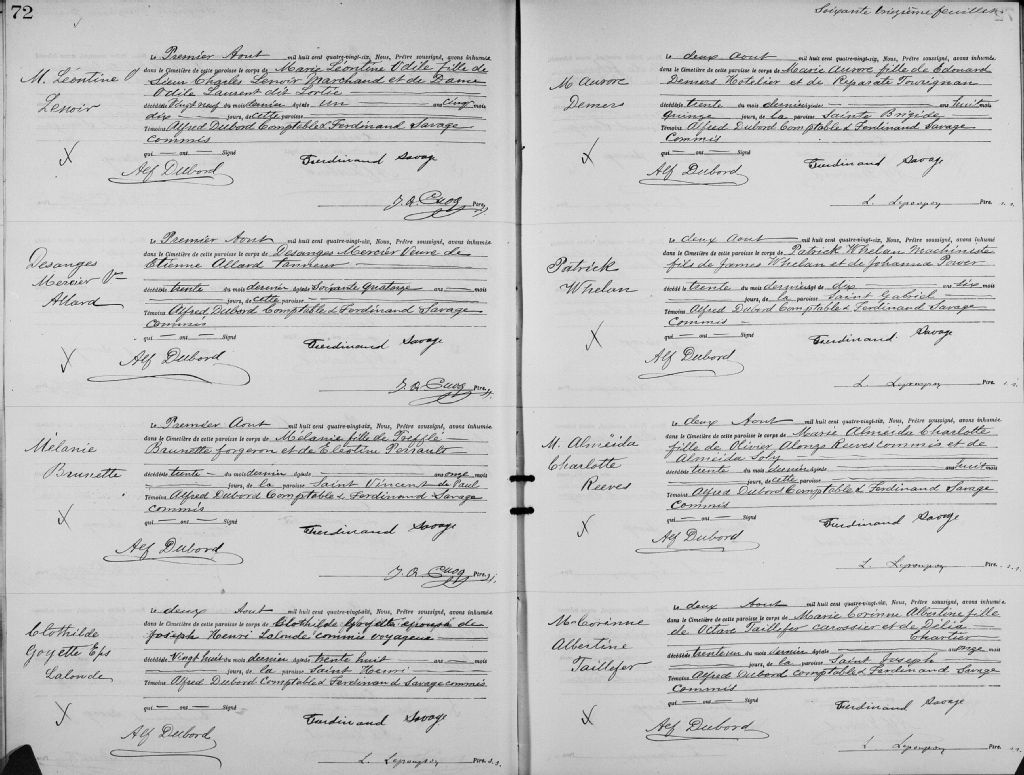 72
M. Léontine O
Lenoir
Le Premier Aout mil huit cent quatre-vingt-six, Nous, Prêtre soussigné, avons inhumée
dans le Cimetière de cette paroisse le corps de Marie Léontine Odile fille de
Sieur Charles Lenoir Marchand et de Dame
Odile Laurent dit Lortie
décédée Vingt neuf du mois dernier âgée de un an cinq mois
dix jours, de cette paroisse
Témoins Alfred Dubord Comptable & Ferdinand Savage
Commis
qui — ont — Signé
Alf Dubord Ferdinand Savage
J. A. Cuoq Ptre.
Desanges
Mercier Ve
Allard
Le Premier Aout mil huit cent quatre-vingt-six, Nous, Prêtre soussigné, avons inhumée
dans le Cimetière de cette paroisse le corps de Desanges Mercier Veuve de
Etienne Allard tanneur
décédée trente du mois dernier âgée de Soixante quatorze ans mois
jours, de cette paroisse
Témoins Alfred Dubord Comptable & Ferdinand Savage
Commis
qui — ont — Signé
Alf Dubord Ferdinand Savage
J. A. Cuoq Ptre.
Mélanie
Brunette
Le Premier Aout mil huit cent quatre-vingt-six, Nous, Prêtre soussigné, avons inhumée
dans le Cimetière de cette paroisse le corps de Mélanie fille de Trefflé
Brunette forgeron et de Perrault
décédée trente du mois dernier âgée de ans onze mois
jours, de la paroisse Saint Vincent de Paul
Témoins Alfred Dubord Comptable & Ferdinand Savage
Commis
qui — ont — Signé
Alf Dubord Ferdinand Savage
J. A. Cuoq Ptre.
Clothilde
Goyette Eps
Lalonde
Le deux Aout mil huit cent quatre-vingt-six, Nous, Prêtre soussigné, avons inhumée
dans le Cimetière de cette paroisse le corps de Clothilde Goyette épouse de
Joseph Henri Lalonde commis voyageur
décédée Vingt huit du mois dernier âgée de trente huit ans mois
jours, de la paroisse Saint Henri
Témoins Alfred Dubord Comptable & Ferdinand Savage commis
qui — ont — Signé
Alf Dubord Ferdinand Savage
Ptre. s.s.
Soixante treizième feuillet
M Aurore
Demers
Le deux Aout mil huit cent quatre-vingt-six, Nous, Prêtre soussigné, avons inhumée
dans le Cimetière de cette paroisse le corps de Marie Aurore fille de Edouard
Demers Hotelier et de Réparate
décédée trente du mois dernier âgée de ans huit mois
quinze jours, de la paroisse Sainte Brigide
Témoins Alfred Dubord Comptable & Ferdinand Savage
Commis
qui — ont — Signé
Alf Dubord Ferdinand Savage
Ptre. s.s.
Patrick
Whelan
Le deux Aout mil huit cent quatre-vingt-six, Nous, Prêtre soussigné, avons inhumé
dans le Cimetière de cette paroisse le corps de Patrick Whelan Machiniste
fils de James Whelan et de Johanna Power
décédé le trente du mois dernier âgé de dix ans six mois
jours, de la paroisse Saint Gabriel
Témoins Alfred Dubord Comptable & Ferdinand Savage
Commis
qui — ont — Signé
Alf Dubord Ferdinand Savage
Ptre. s.s.
M. Alméida
Charlotte
Reeves
Le deux Aout mil huit cent quatre-vingt-six, Nous, Prêtre soussigné, avons inhumée
dans le Cimetière de cette paroisse le corps de Marie Alméida Charlotte
fille de Olivier Alonzo Reeves commis et de
Alméida Joly
décédée trente du mois dernier âgée de ans huit mois
jours, de cette paroisse
Témoins Alfred Dubord Comptable & Ferdinand Savage
Commis
qui — ont — Signé
Alf Dubord Ferdinand Savage
Ptre. s.s.
M Corinne
Albertine
Taillefer
Le deux Aout mil huit cent quatre-vingt-six, Nous, Prêtre soussigné, avons inhumée
dans le Cimetière de cette paroisse le corps de Marie Corinne Albertine fille
de Octave Taillefer carossier et de Délia
Chartier
décédée trente un du mois dernier âgée de ans onze mois
jours, de la paroisse Saint Joseph
Témoins Alfred Dubord comptable & Ferdinand Savage
Commis
qui — ont — Signé
Alf Dubord Ferdinand Savage
Ptre. s.s.